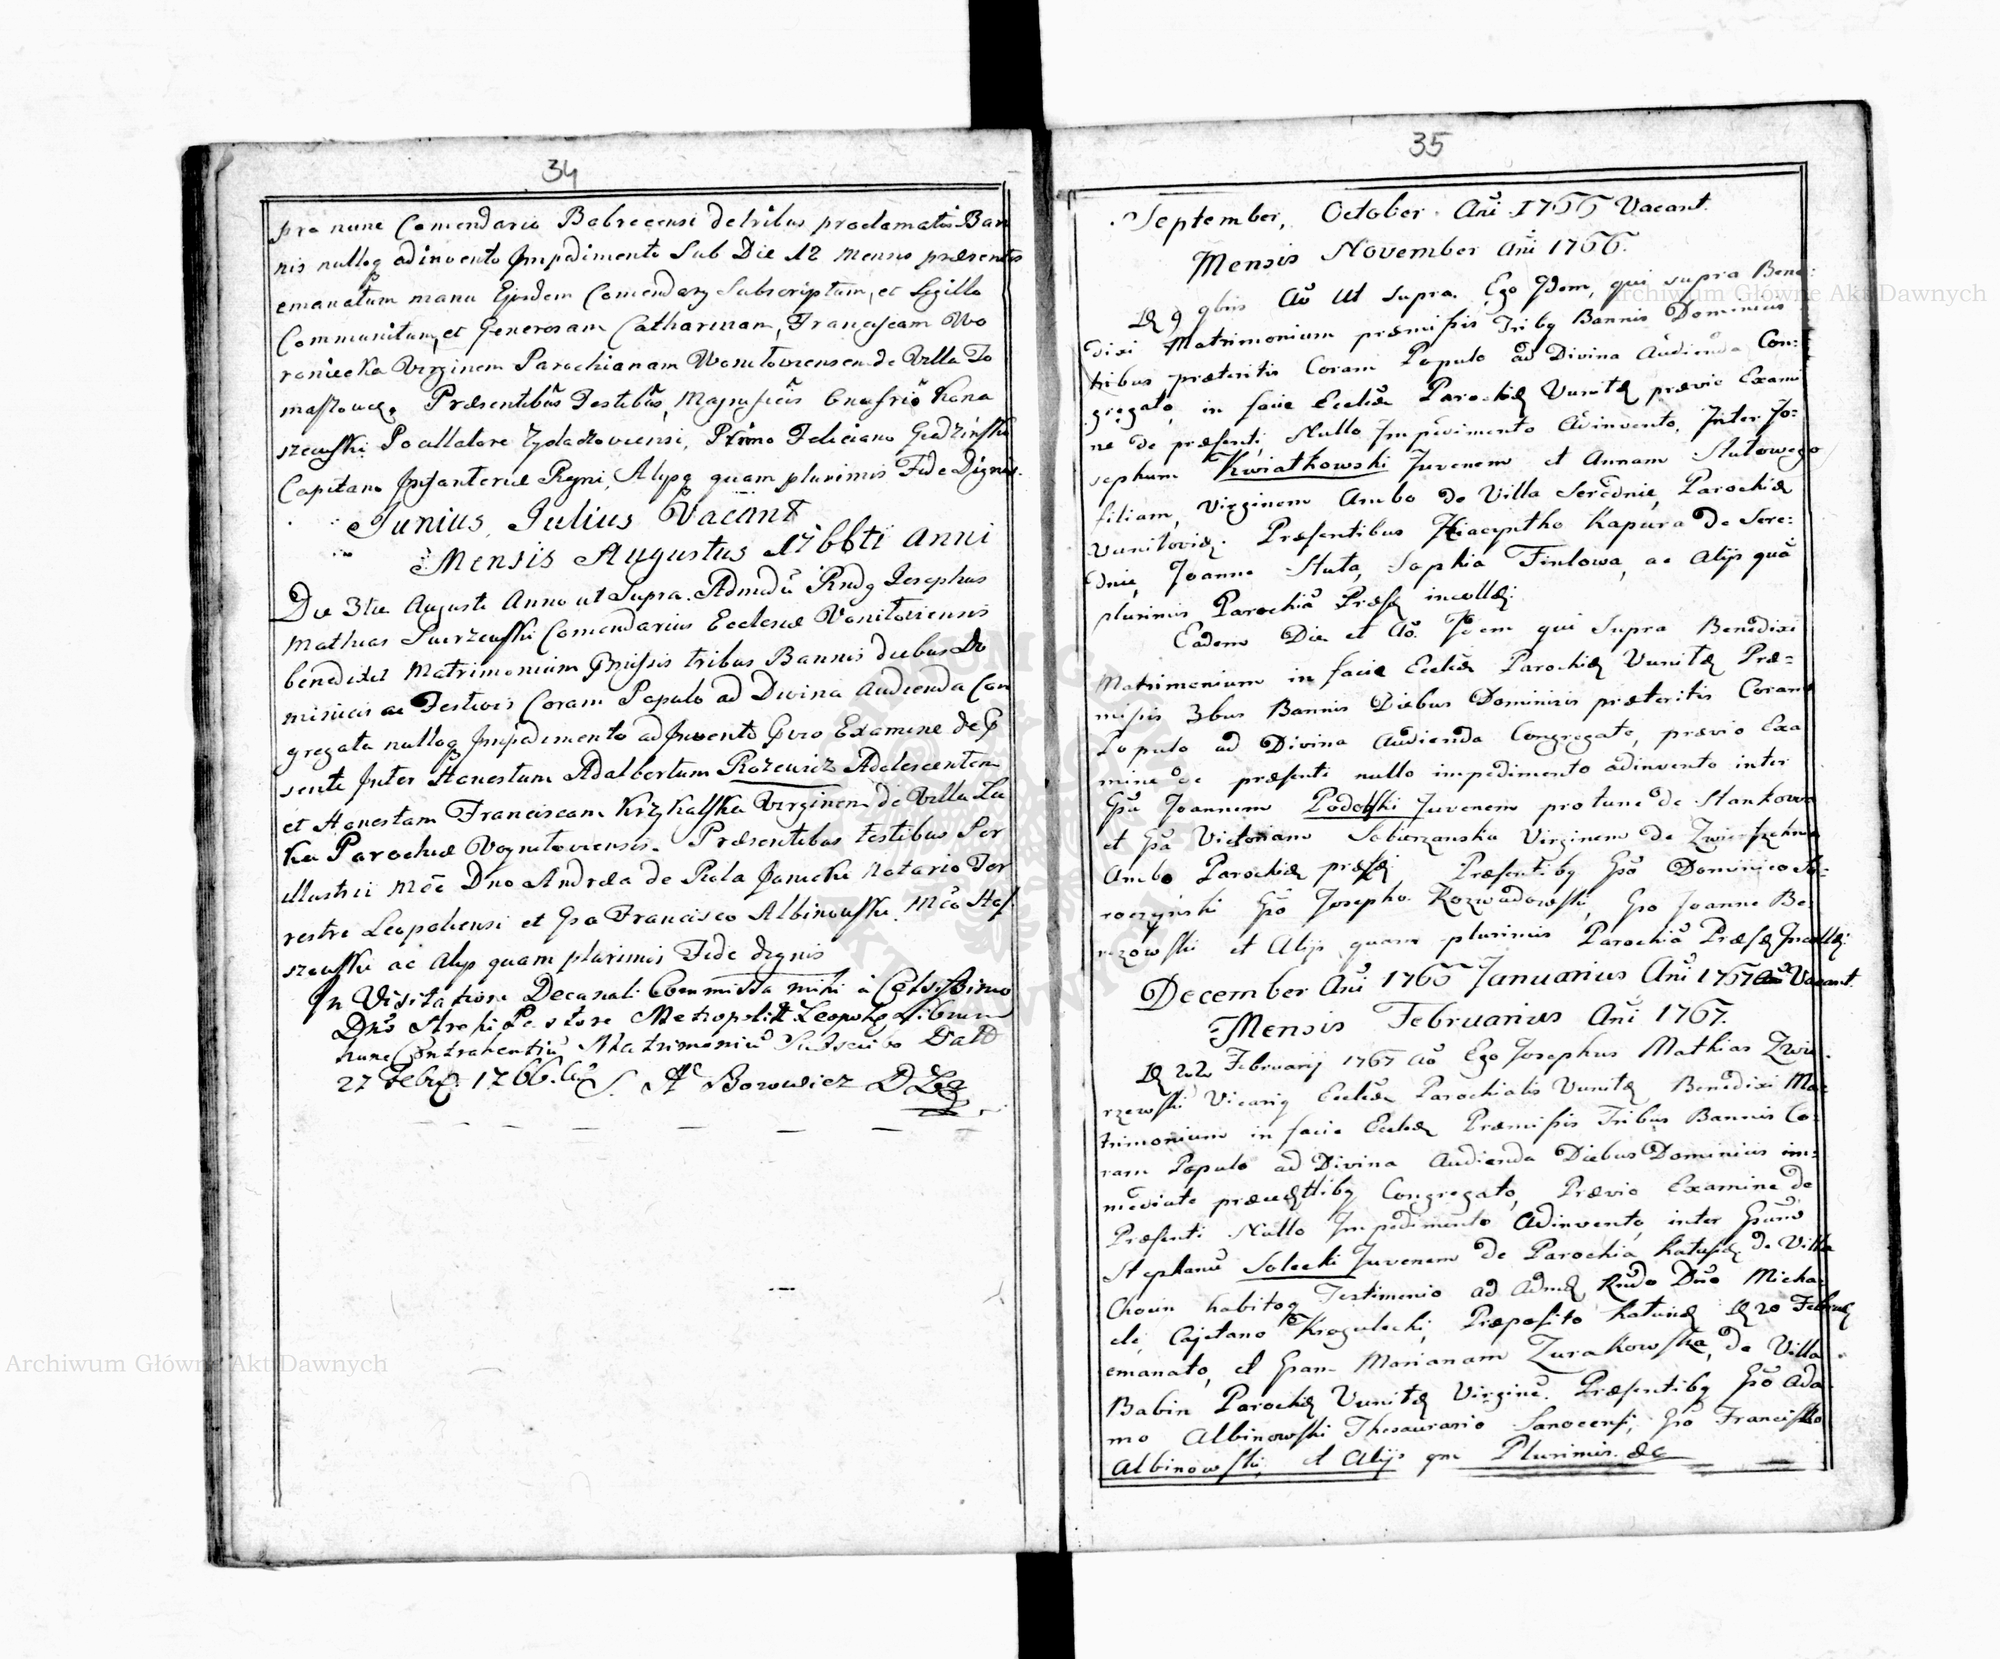 34
pro nunc Comendario Bobrecensi de tribus proclamatis Ban
nis nulloq adinvento Impedimento Sub Die 12 mensis præsentis
emanatum manu Ejusdem Comendarij Subscriptum, et Sigillo
Communitum, et Generosam Catharinam, Franciscam Wo
roniecka Virginem Parochianam Wonitoviensem de Villa To
maszowce. Præsentibus Testibus, Magnificis Onufrio Kona
szewski Pocillatore Zydaczoviensi, Feliciano
Capitano Infanteriæ Regni, Alijsq quam plurimis Fide Dignis.
Junius, Julius Vacant
Mensis Augustus 1766ti Anni
Die 3tia Augusti Anno ut Supra. Admodu Rndq Josephus
Mathias Zwierzewski Comendarius Ecclesiæ Vonitoviensis
benedixit Matrimonium præmissis tribus Bannis diebus Do
minicis ac Festivis Coram Populo ad Divina Audienda Con
gregato nulloq Impedimento adInvento prævio Examine de præ
senti Inter Honestum Adalbertum Rozewicz Adolescentem
et Honestam Franciscam Krzykalska Virginem de Villa Lu
ka Parochiæ Voynitoviensis. Præsentibus testibus Per
illustri Mco Dno Andrea de Piola Janicki Notario Ter
restri Leopoliensi et Gso Francisco Albinowski, Mco
szewski ac Alijs quam plurimis Fide dignis
In Visitatione Decanali Commissa mihi à Celsissimo
Dno Archi Pastore Metropolitæ Leopolis Librum
hunc Contrahentiu Matrimoniu Subscribo Datt
27 Febr. 1766. S. A Borowicz D
35
September, October Ani 1766 Vacant.
Mensis November Ani 1766.
Die 9 9bris Ao Ut Supra. Ego Idem, qui supra Bene:
dixi Matrimonium præmissis Tribq Bannis Dominicis
tribus præteritis Coram Populo ad Divina Audienda Con:
gregato, in facie Eccliæ Parochiæ Vunitæ prævio Exami
ne de præsenti, Nullo Impedimento Adinvento, Inter Jo:
sephum Kwiatkowski Juvenem et Annam Stutowego
filiam, Virginem Ambo de Villa Serednie, Parochiæ
Vunitoviæ. Præsentibus Hiacyntho Kapura de Sere:
dnie, Joanne Stuta, Sophia Finlowa, ac Alijs qua
plurimis Parochia Præse incollis.
Eadem Die et Ao. Idem qui Supra Benedixi
Matrimonium in facie Eccliæ Parochiæ Vunitæ Præ=
missis 3bus Bannis Diebus Dominicis præteritis Coram
Populo ad Divina Audienda Congregato, prævio Exa
mine de præsenti nullo impedimento adinvento inter
Gsu Joannem Podolski Juvenem pro tunc de Stankowa
et Gsa Victoriam Saburzanska Virginem de
Ambo Parochiæ præse, Præsentibq Gso Dominico
Gso Josepho Rozwadowski, Gso Joanne Be:
rezowski et Alijs quam plurimis Parochia Præse Incollis.
December Ani 1766 Januarius Ani 1767 Vacant.
Mensis Februarius Ani 1767.
Die 22 Februarij 1767 Ao Ego Josephus Mathias Zwie
rzewski Vicariq Eccliæ Parochialis Vunitæ Benedixi Ma:
trimonium in facie Eccliæ Præmissis Tribus Bannis Co:
ram Populo ad Divina Audienda Diebus Dominicis im=
mediate præcedentibq Congregato, Prævio Examine de
Præsenti Nullo Impedimento Adinvento, inter Gsum
Stephanu Solecki Juvenem de Parochia Katusiæ de Villa
Chocin habitoq Testimonio ad Admod Rndo Dno Micha
ele Cajetano Krogulecki, Præposito Katusiæ Die 20 Februarij
emanato, et Gsam Marianam Zurakowska, de Villa
Babin Parochiæ Vunitæ Virgine. Præsentibq Gso Ada
mo Albinowski Thesaurario Sanocensi, Gso Francisco
Albinowski, et Alijs qm Plurimis. &c
Archiwum Główne Akt Dawnych
Archiwum Główne Akt Dawnych